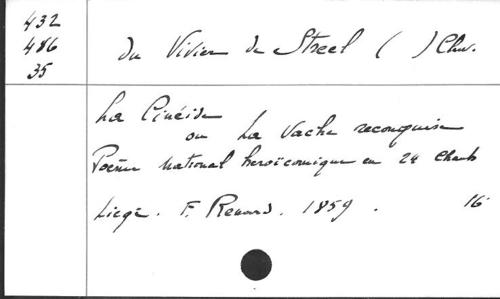 432
486
35
du Vivier de Streel ( ) Chev.
La Cinéide
ou La Vache reconquise
Poème national heroïcomique en 24 Chants
Liege. F. Renard. 1859. 16°